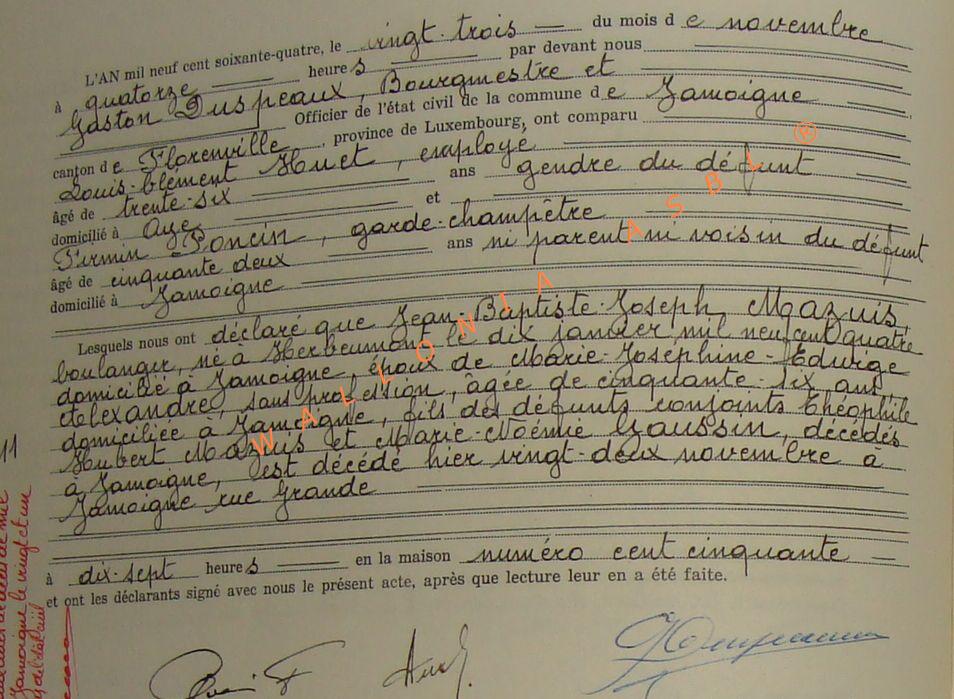 L'AN mil neuf cent soixante-quatre, le vingt-trois du mois de novembre
à quatorze heures par devant nous
Gaston Duspeaux, Bourgmestre et
Officier de l'état civil de la commune de Jamoigne
canton de Florenville, province de Luxembourg, ont comparu
Louis-Clément Huet, employé
âgé de trente-six ans gendre du défunt
domicilié à Aye et
Firmin Poncin, garde-champêtre
âgé de cinquante deux ans ni parent ni voisin du défunt
domicilié à Jamoigne
Lesquels nous ont déclaré que Jean-Baptiste-Joseph Mazuis,
boulanger, né à Herbeumont le dix janvier mil neuf cent quatre
domicilié à Jamoigne, époux de Marie-Joséphine-Edwige
Alexandre, sans profession, âgée de cinquante-six ans,
domiciliée à Jamoigne, fils des défunts conjoints Théophile
Hubert Mazuis et Marie-Noémie Gaussin, décédés
à Jamoigne, est décédé hier vingt-deux novembre à
Jamoigne rue Grande
à dix-sept heures en la maison numéro cent cinquante
et ont les déclarants signé avec nous le présent acte, après que lecture leur en a été faite.
WALLONIA ASBL ®
11
Jamoigne le vingt et un